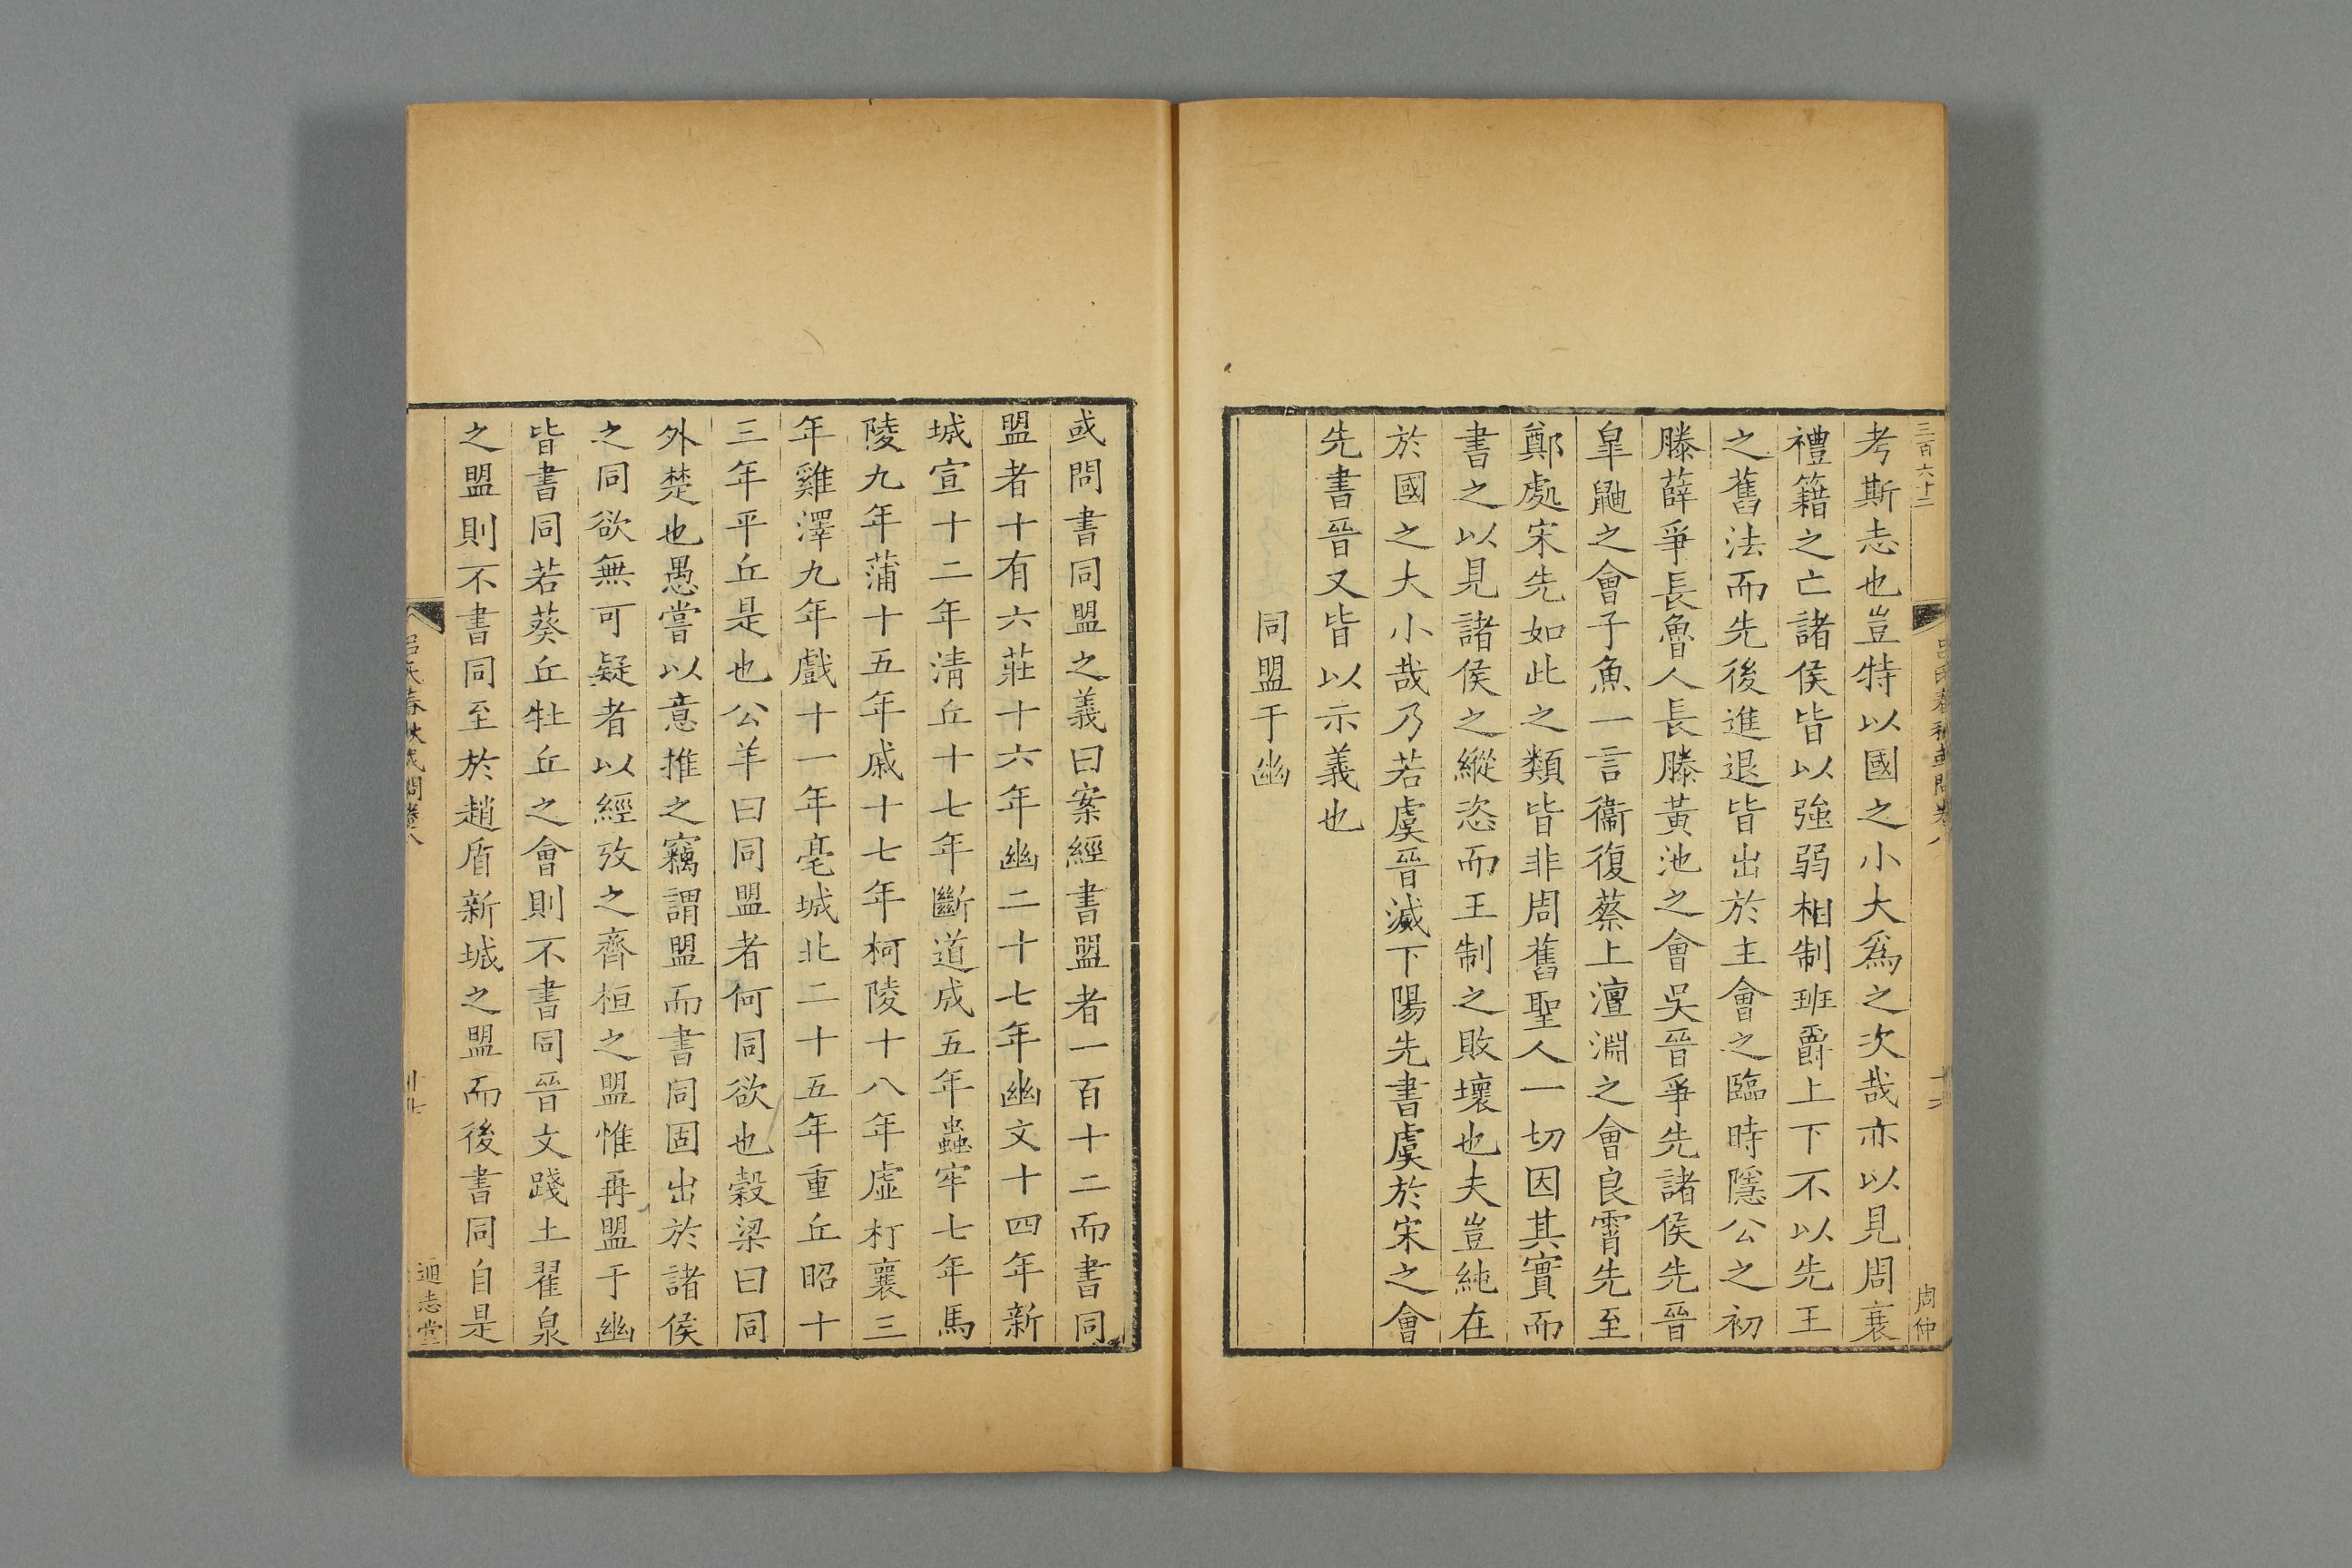 三百六十二
呂氏春秋或問卷八
十六
周仲
考斯志也豈特以國之小大爲之次哉亦以見周衰
禮籍之亡諸侯皆以強弱相制班爵上下不以先王
之舊法而先後進退皆出於主會之臨時隱公之初
滕薛爭長魯人長滕黃池之會吳晉爭先諸侯先晉
皐鼬之會子魚一言衞復蔡上澶淵之會良霄先至
鄭處宋先如此之類皆非周舊聖人一切因其實而
書之以見諸侯之縱恣而王制之敗壞也夫豈純在
於國之大小哉乃若虞晉滅下陽先書虞於宋之會
先書晉又皆以示義也
同盟于幽
或問書同盟之義曰案經書盟者一百十二而書同
盟者十有六莊十六年幽二十七年幽文十四年新
城宣十二年清丘十七年斷道成五年蟲牢七年馬
陵九年蒲十五年戚十七年柯陵十八年虛朾襄三
年雞澤九年戲十一年亳城北二十五年重丘昭十
三年平丘是也公羊曰同盟者何同欲也穀梁曰同
外楚也愚嘗以意推之竊謂盟而書同固出於諸侯
之同欲無可疑者以經攷之齊桓之盟惟再盟于幽
皆書同若葵丘牡丘之會則不書同晉文踐土翟泉
之盟則不書同至於趙盾新城之盟而後書同自是
呂氏春秋或問卷八
通志堂